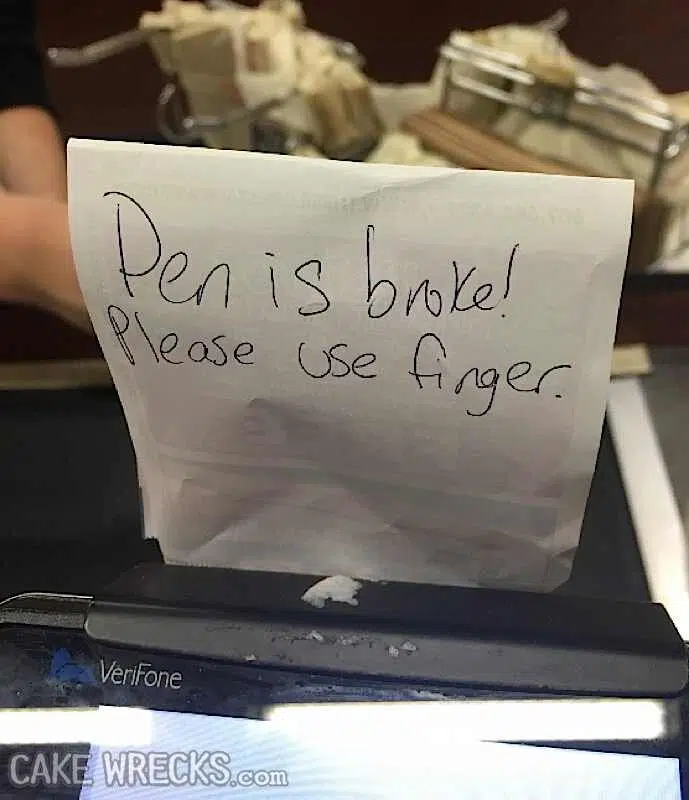 Pen is broke!
Please use finger.
VeriFone
CAKE WRECKS.com